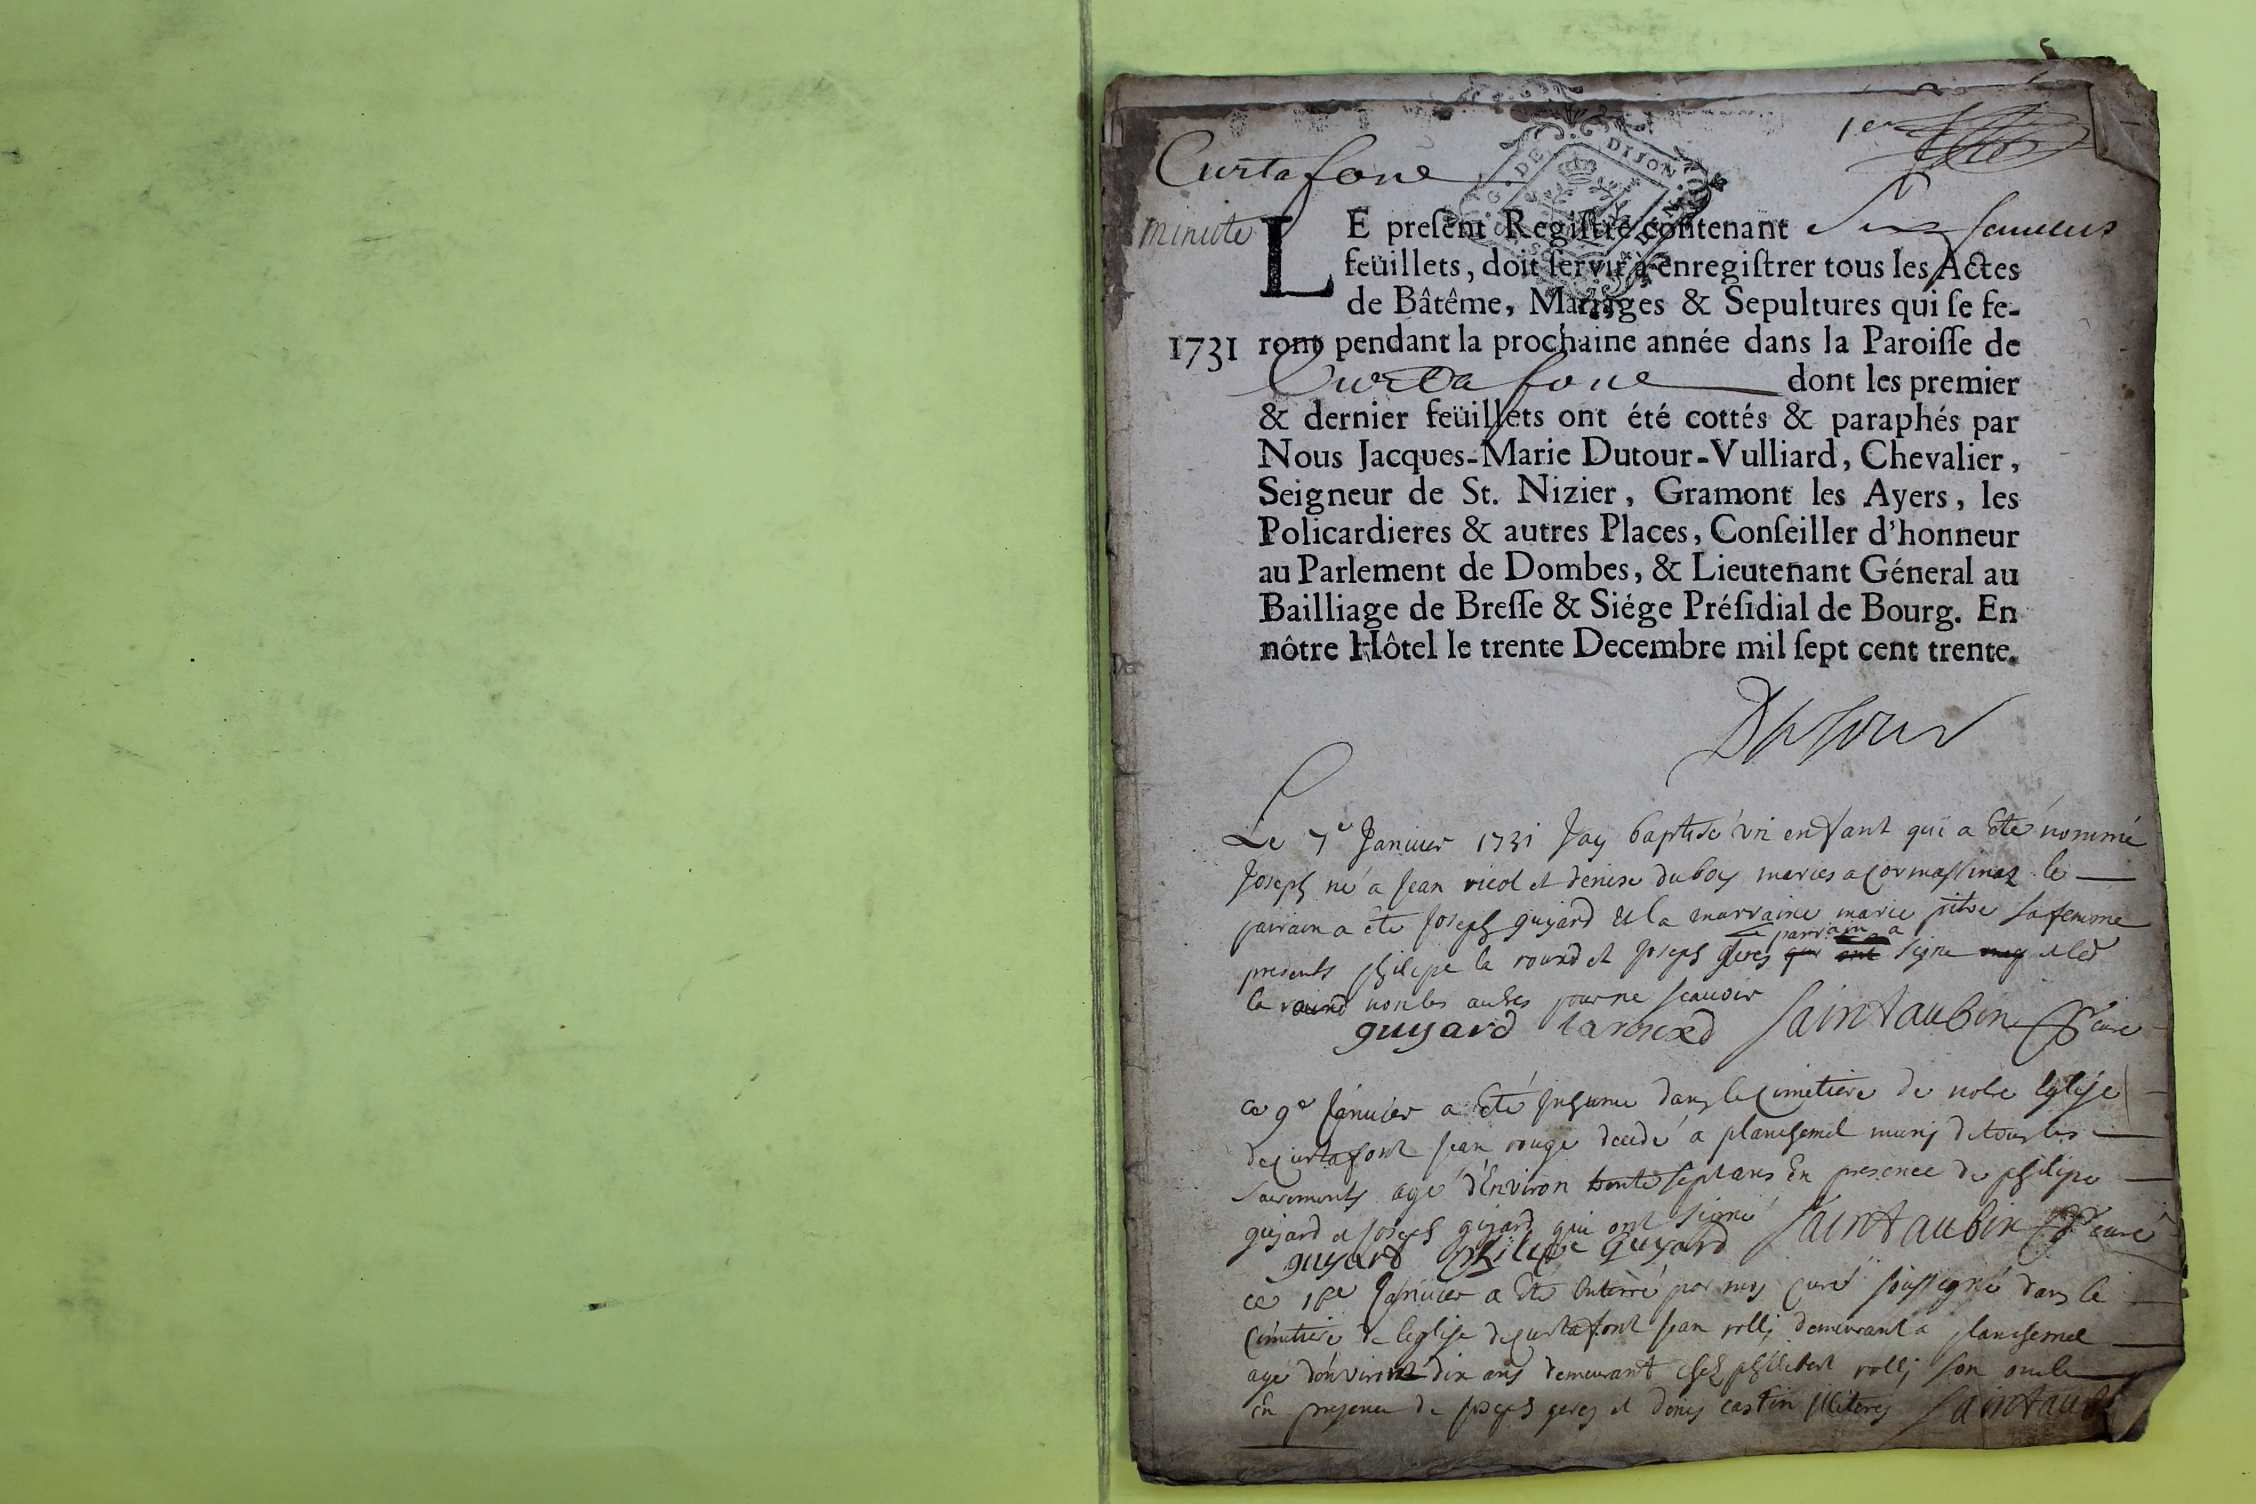 1er
G. DE DIJON
Curtafond
minute
LE preſent Regiſtre contenant
feüillets, doit ſervir à enregiſtrer tous les Actes
de Bâtême, Mariages & Sepultures qui ſe fe-
1731 ront pendant la prochaine année dans la Paroiſſe de
Curtafond dont les premier
& dernier feüillets ont été cottés & paraphés par
Nous Jacques-Marie Dutour-Vulliard, Chevalier,
Seigneur de St. Nizier, Gramont les Ayers, les
Policardieres & autres Places, Conſeiller d'honneur
au Parlement de Dombes, & Lieutenant Géneral au
Bailliage de Breſſe & Siége Préſidial de Bourg. En
nôtre Hôtel le trente Decembre mil ſept cent trente.
Dutour
Le 7e Januier 1731 Jay baptisé vn enfant qui a Eté nommé
Joseph né a Jean et denise duboy maries a le
parrain a eté Joseph guyard et la marraine marie sa femme
presents philipe la rourd et Joseph le parrain a signé et led
la rourd non les autres pour ne scauoir
guyard Saintaubin curé
ce 9e Januier a Eté Inhumé dans le Cimetiere de notre Eglise
de Curtafont Jean rouge decedé a planchemel muny de tous les
Sacrements agé d'Environ trente sept ans En presence de philipe
guyard et Joseph guyard qui ont signé Saintaubin curé
guyard philipe guyard
ce Januier a Eté Enterré par moy curé soussigné dans le
Cimetiere de leglise de Curtafont Jean rolly demeurant a planchemel
agé d'environ dix ans demeurant chez philibert rolly son oncle
En presence de Joseph et denis castin illiterés Saintaub